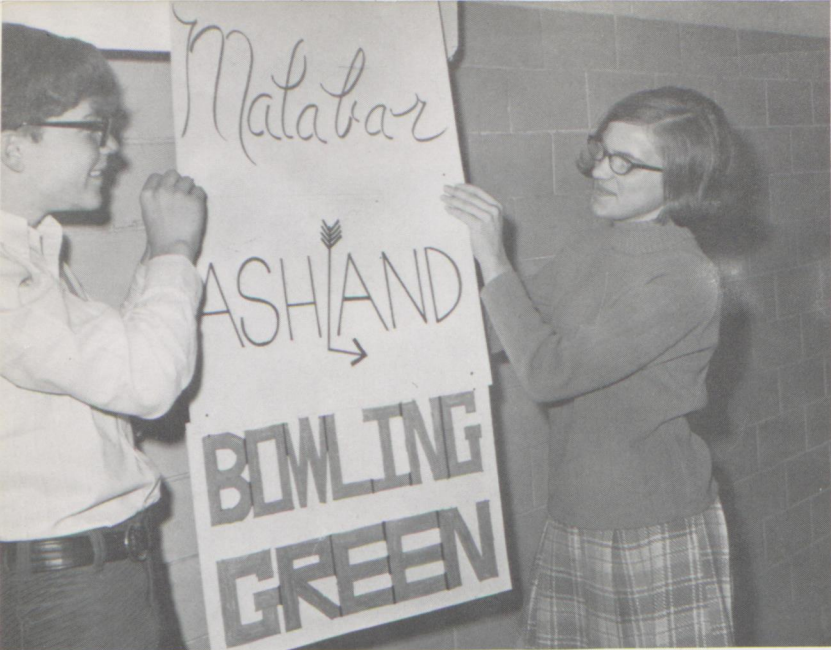 Malabar
ASHLAND
BOWLING
GREEN